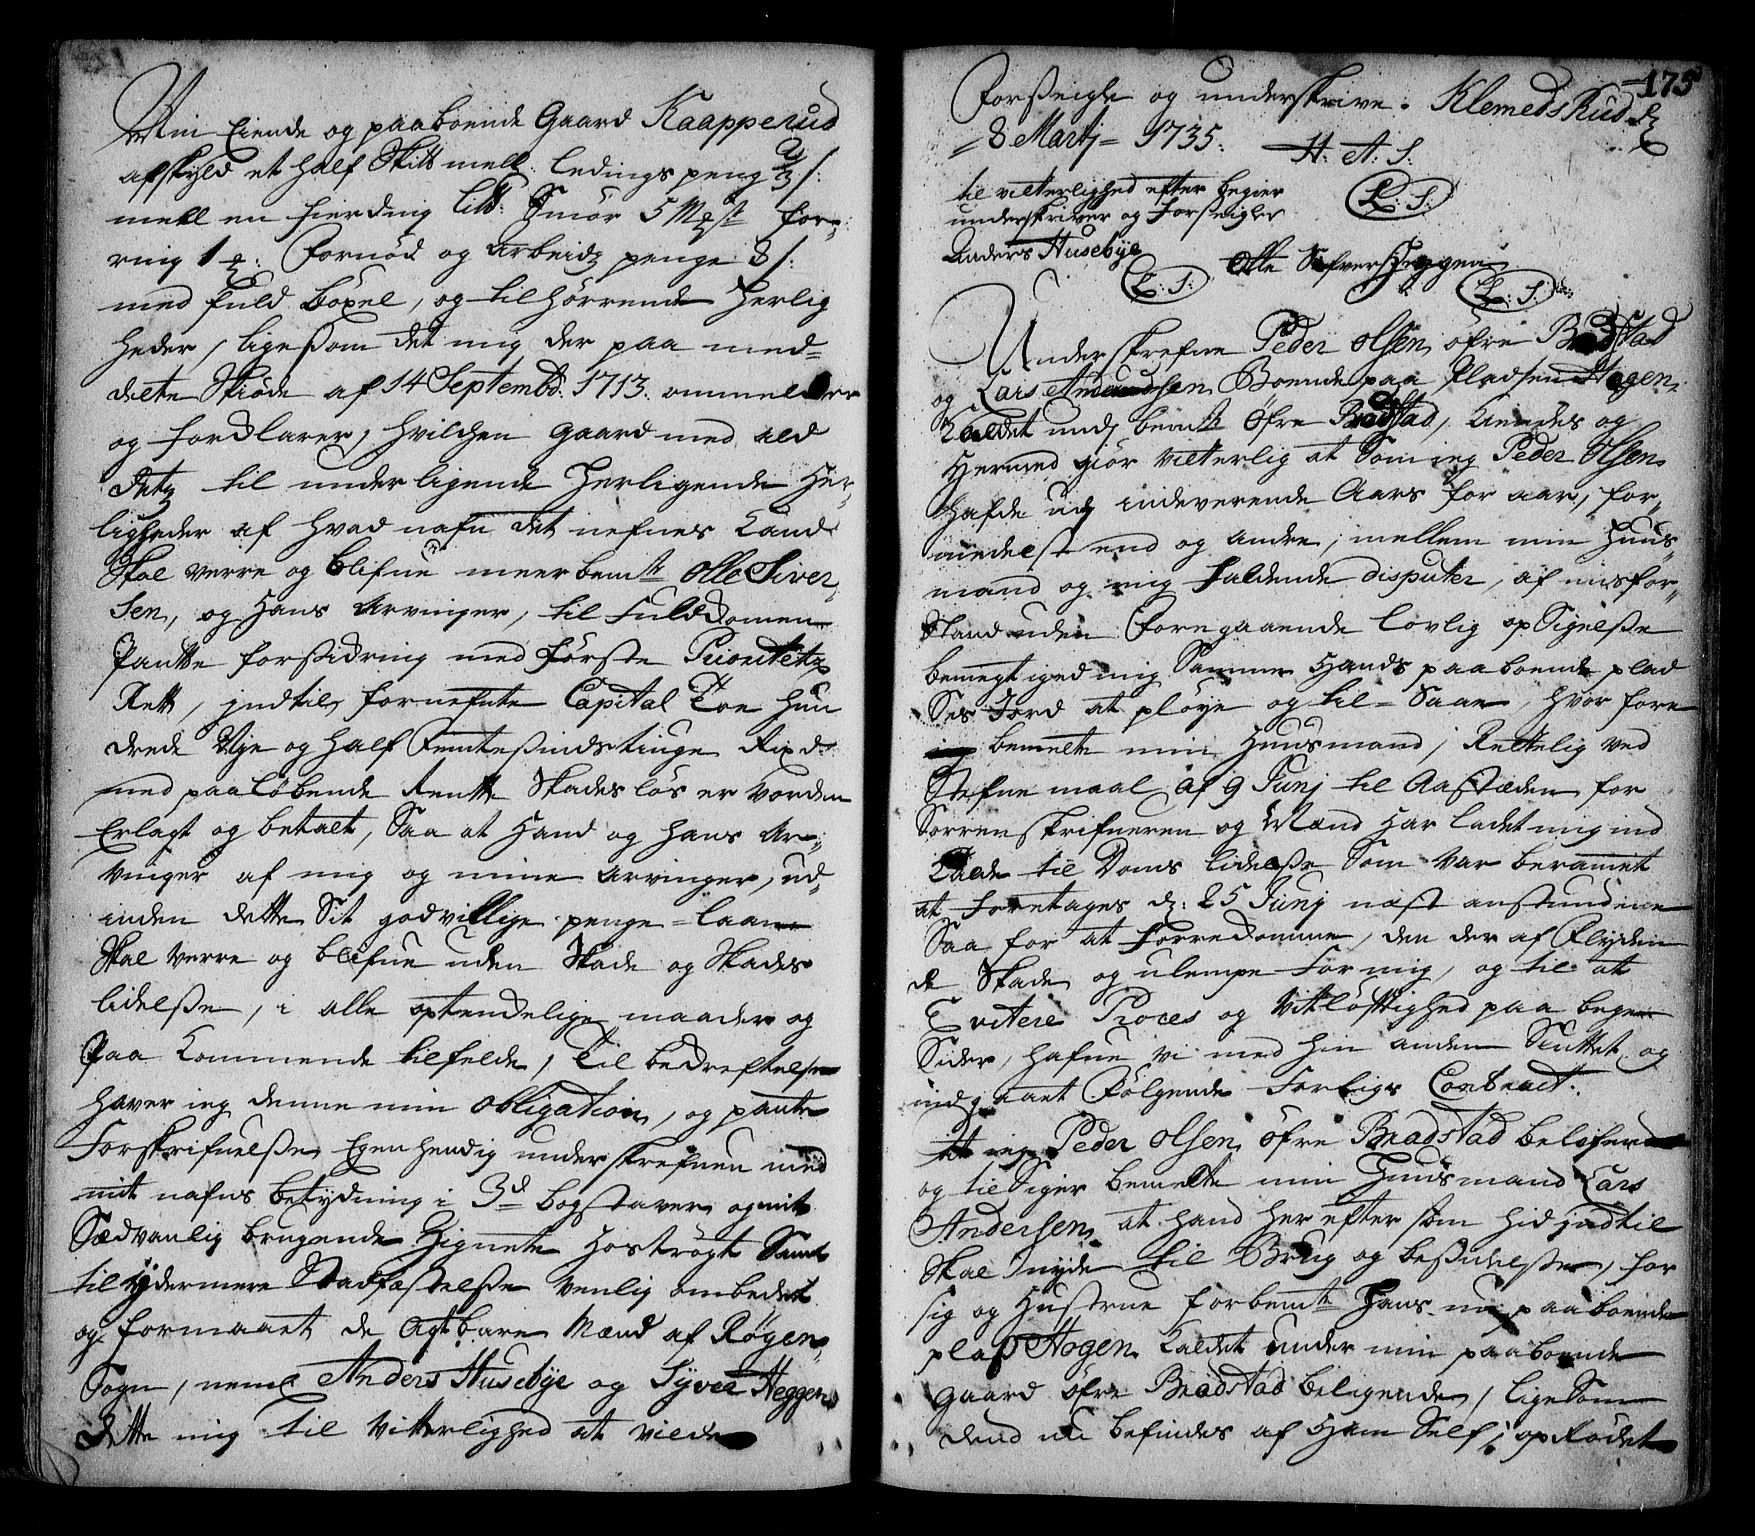 Min Eiende og paaboende Gaard Kaapperud
afskyld et half Skitt mell: ledings peng
mell en fierding litt: Smør 5
ring 1 Fornød og Arbeidz penge 8 s:
med fuld böxel, og tilhørrende Herlig
heder, ligesom det mig der paa med-
deelte Skiøde af 14 Septembr. 1713. ommelder
og fordlarer, hvilchen gaard med ald
Retz til underligende Herligende Her-
ligheder af hvad nafn det nefnes kand
Skal verre og blifue meerbemte Olle Siver
Sen, og Hans Arvinger, til Fulddomen
Pantte forsidring med første Prioritetz
Rett, jndtil fornefnte Capital Toe Hun
drede Nye og half Femtesindstiuge Rixd:
med paaløbende Rentte Skadesløs er vorden
Erlagt og betalt, Saa at Hand og hans Ar-
vinger af mig og mine Arvinger, ud-
inden dette Sit godvillige penge-laan
Skal verre og blifue uden Skade og Skades
lidelse, i alle optendelige maader og
Paa kommende tilfelde, Til bedreftelse
haver ieg denne min Obligation, og pante
Forskrifuelse Egenhendig underskrefuen med
mit nafns betydning i 3de bogstaver og mit
Sædvanlig brugende Zignete Hostrøgt Samt
til ydermere Stadfæstelse venlig ombedet
og formaaet de Agtbare Mænd af Røgen
Sogn, neml Anders Husebye og Syver Heggen
dette mig til Vitterlighed at vilde
175
Forseigle og underskrive. Klemedsrud d
8 Martj 1735. H: A: S:
til vitterlighed efter begier
underskriver og Forseigler (L: S:)
Anders Husebye Olle Sifversen Heggen
(L: S:) (L: S:)
Underskrefne Peder Olsen öfre Bradstad
og Lars Amundsen Boende paa Pladsen Hogen
Kaldet und bemte Öfre Bradstad, kiendes og
Hermed giør vitterlig at Som ieg Peder Olsen
hafde udj indeverende Aars for aar, for-
medelst end og andre, mellem min Huus-
mand og mig Faldende disputer, af misfor-
stand uden Foregaaende lovlig opSigelse
bemegtiged mig Samme Hands paaboende plad
Ses Jord at pløye og til-Saae, hvor fore
bemelte min Huusmand, Rettelig ved
Stefne maal af 9 Junj til Aastæden for
Sorrenskrifueren og Mænd har ladet mig ind
Kalde til Doms lidelse Som var beramit
at Foretages d: 25 Junj næst anstundene
Saa for at Forredomme, den der af Flyden
de Skade og ulempe For mig, og til at
Evitere Proces og Vitløftighed paa begge
Sider, hafue vi med hin anden Sluttet og
indgaaet Følgende Forligs Contract.
At ieg Peder Olsen Öfre Bradstad belofuer
og tilSiger bemelte min Huusmand Lars
Andersen at hand her efter som hid jndtil
Skal nyde til Brug og besidelse, for
sig og Hustrue forbemte Hans nu paaboende
plads Hogen Kaldet under min paaboende
gaard öfre Bradstad beligende, ligeSom
dend nu befindes af Ham Self opRødet